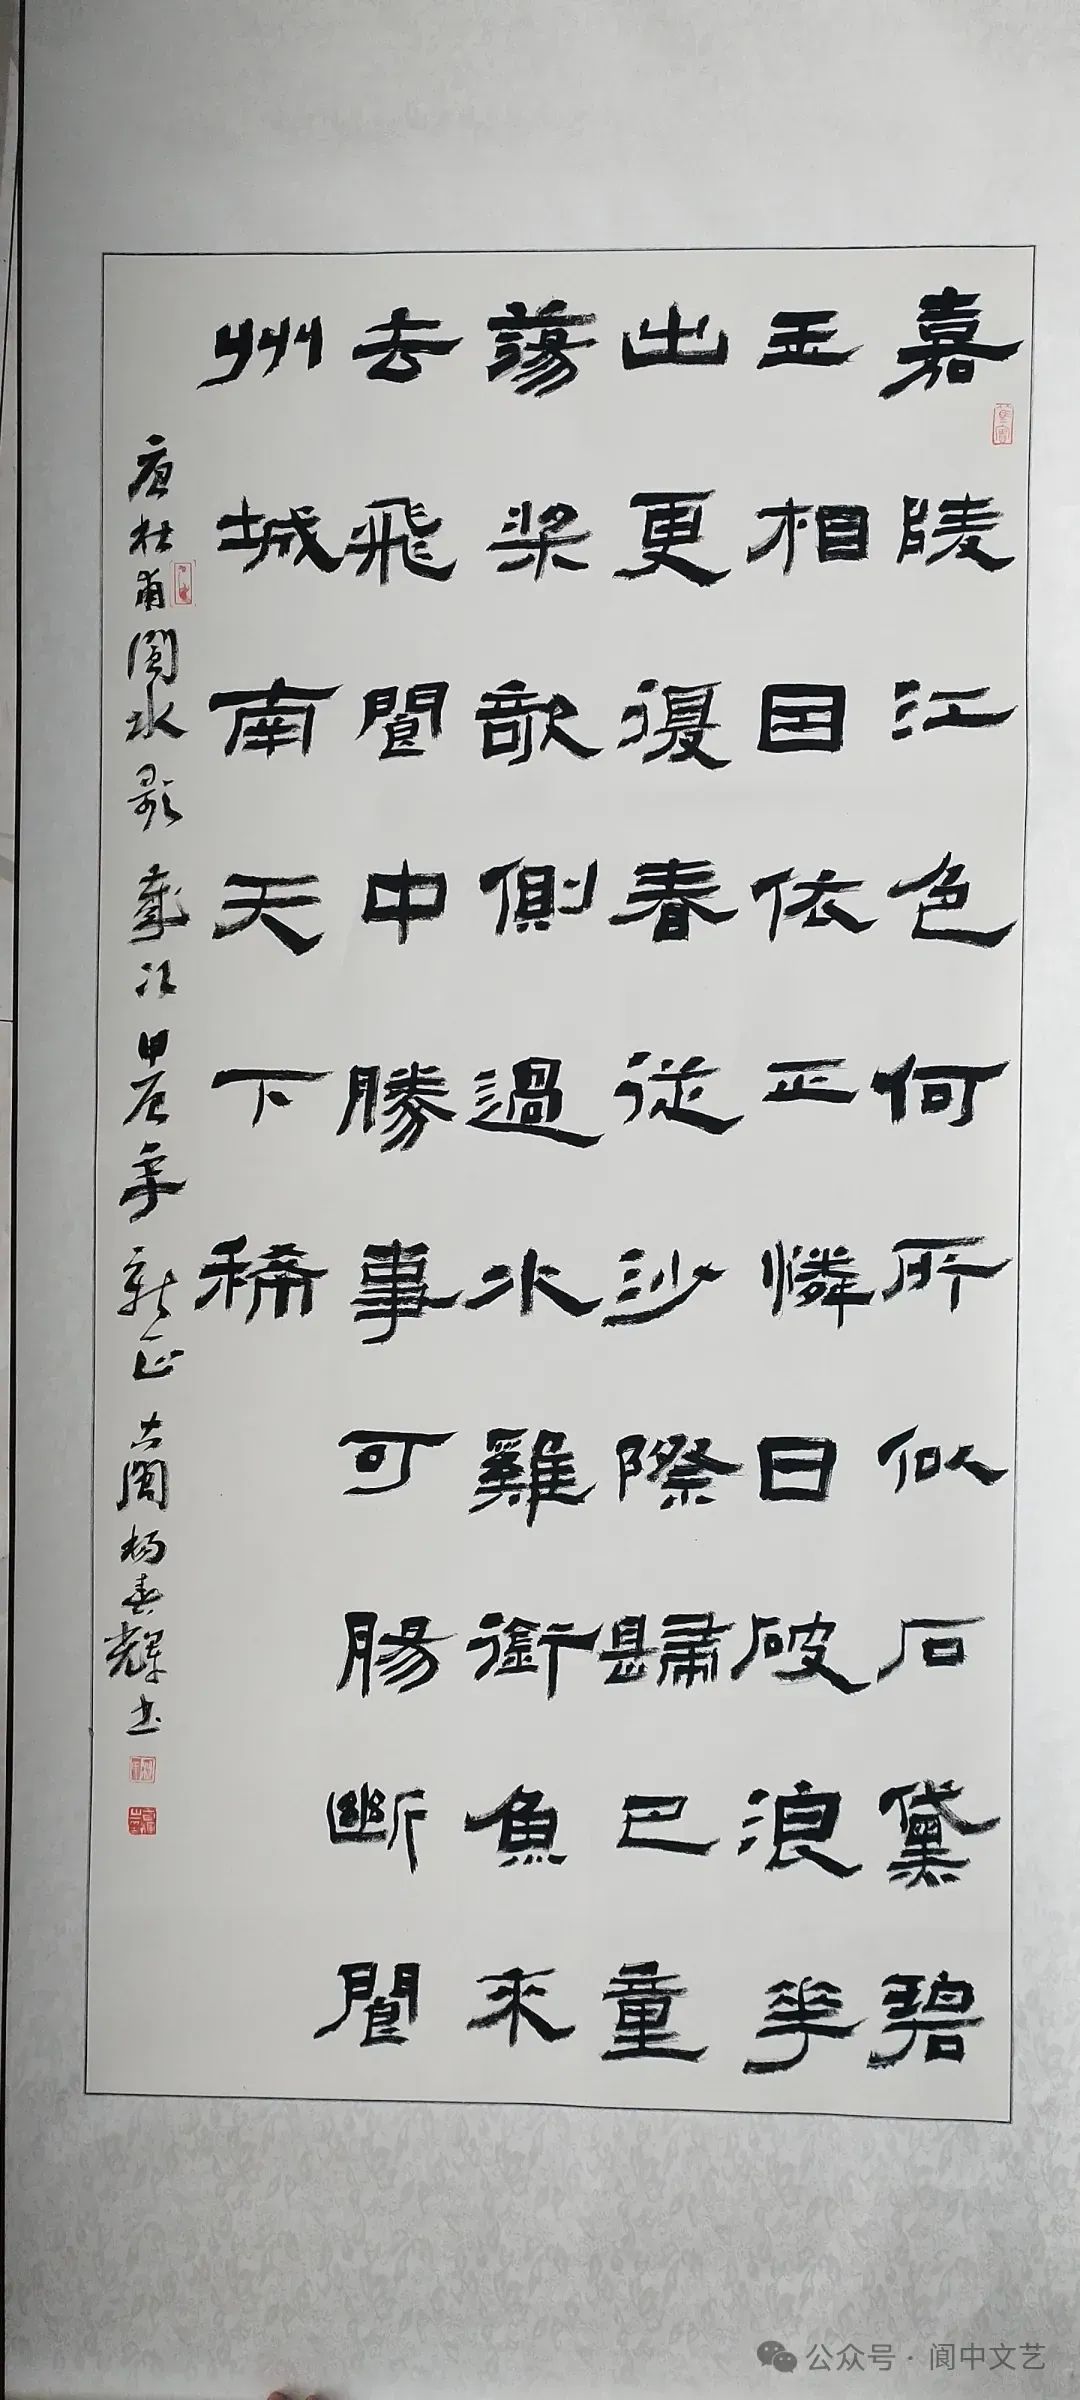 嘉陵江色何所似石黛碧
玉相因依正憐日破浪花
出更復春從沙際歸巴童
蕩槳歌側過水雞銜魚來
去飛閬中勝事可腸斷閬
州城南天下稀
唐杜甫閬水歌 歲次甲辰年 新正 古閬楊春輝書
公众号·阆中文艺